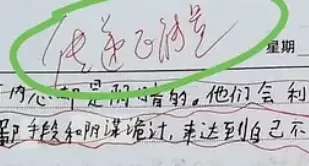 传递正能量
星期
内心都是阴暗的。他们会利
手段和阴谋诡计，来达到自己不